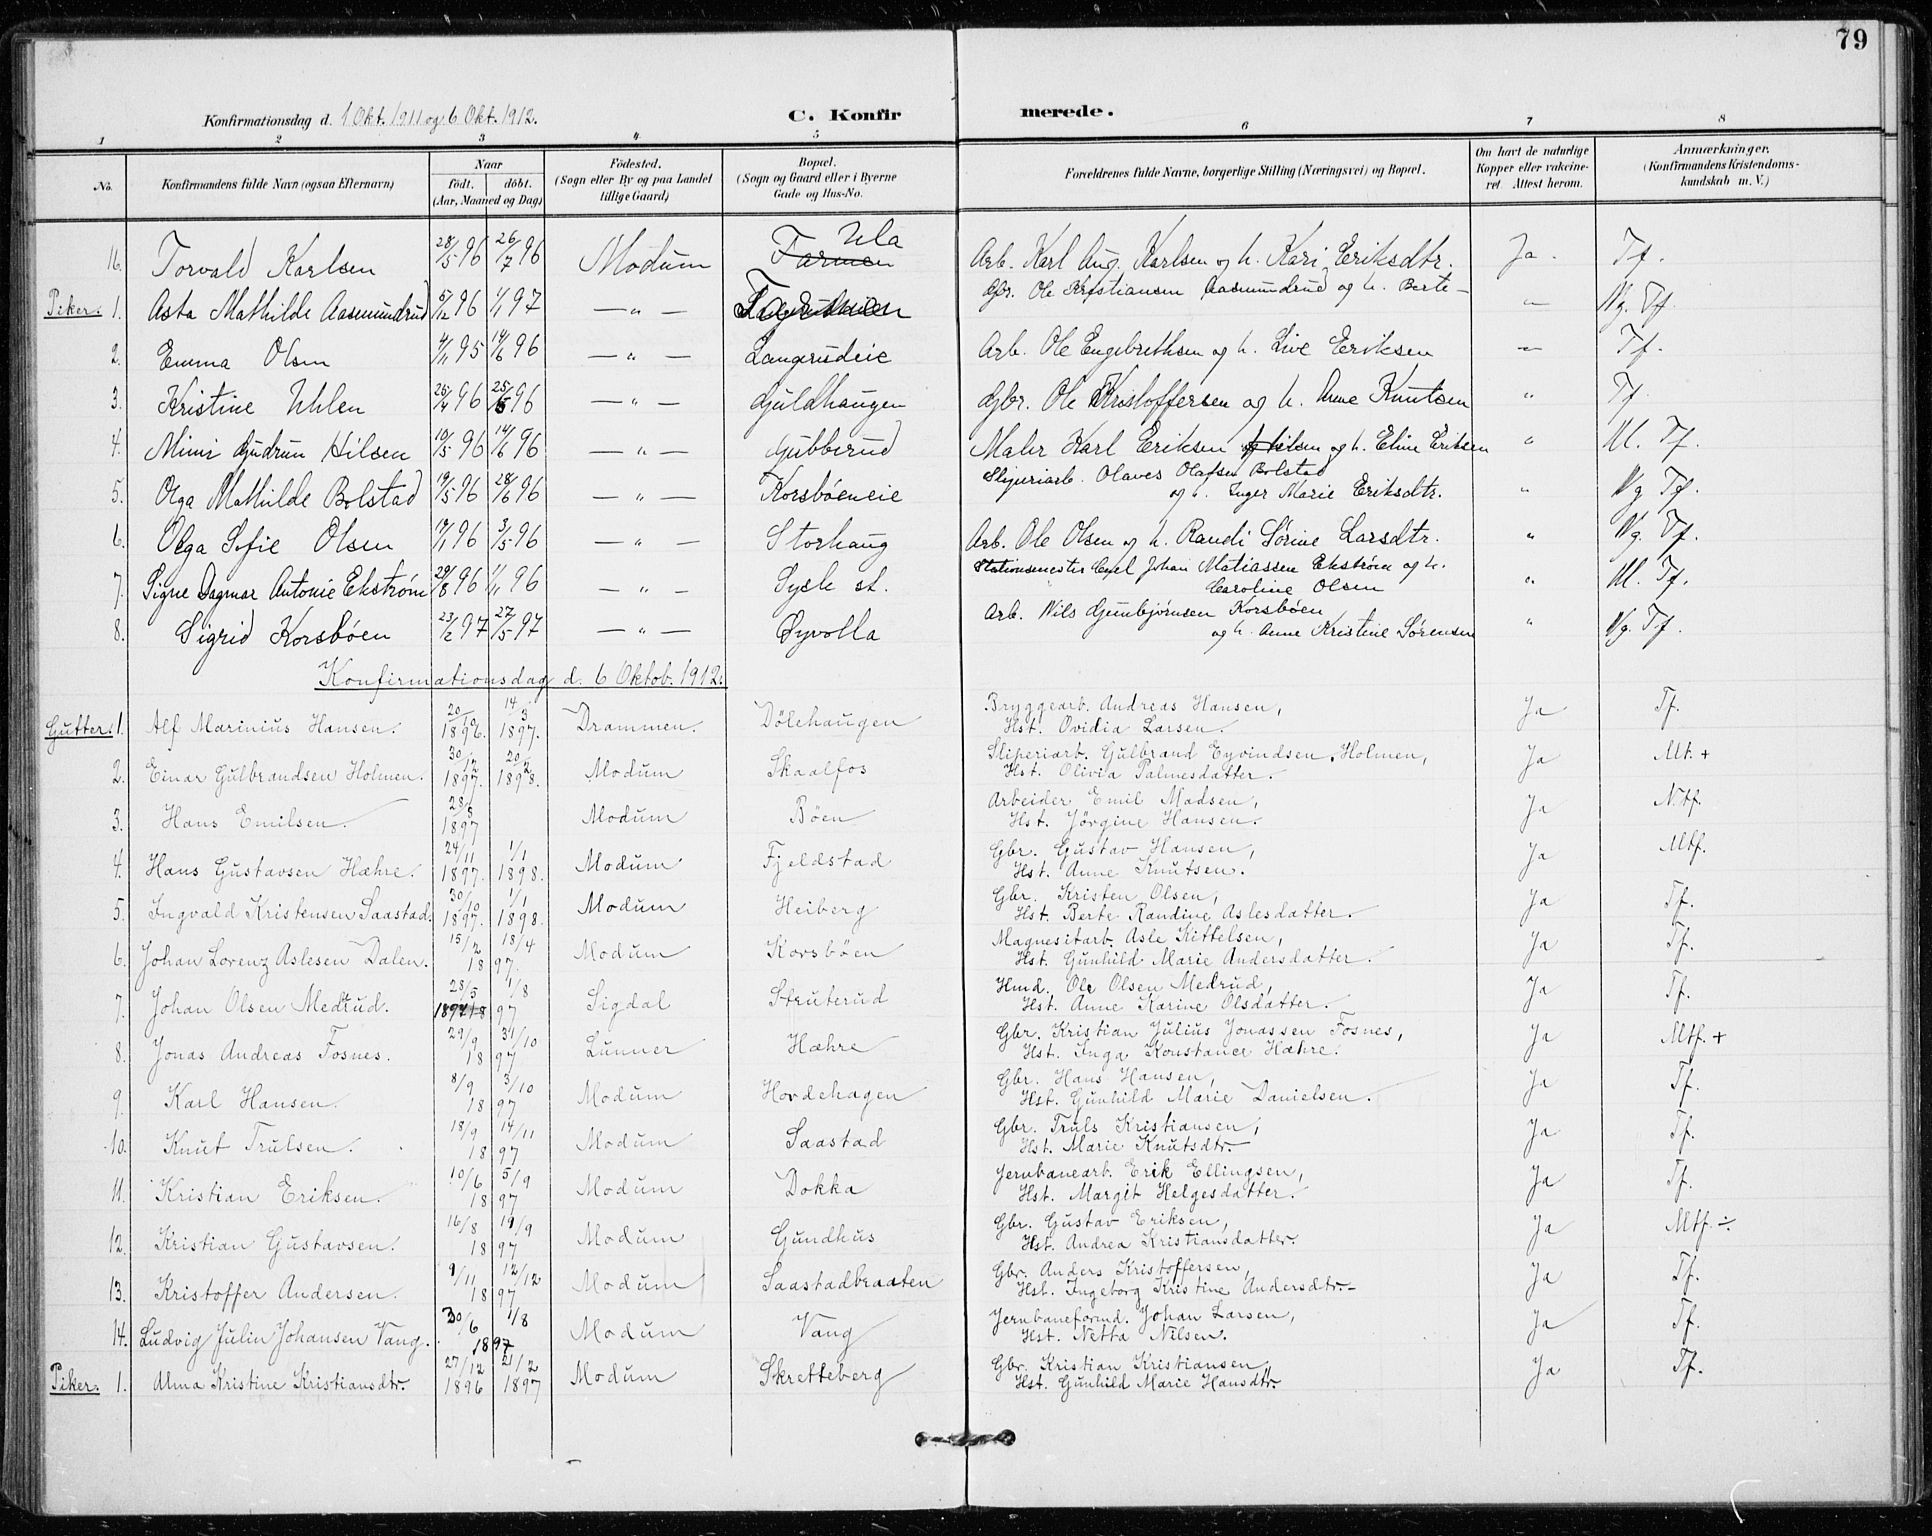 79
Konfirmationsdag d. 1 Okt. 1911 og 6 Okt. 1912. C. Konfirmerede.
1 2 3 4 5 6 7 8
No. Konfirmandens fulde Navn (ogsaa Efternavn) Naar født. døbt. (Aar, Maaned og Dag) Fødested. (Sogn eller By og paa Landet tillige Gaard) Bopæl. (Sogn og Gaard eller i Byerne Gade og Hus-No. Forældrenes fulde Navne, borgerlige Stilling (Næringsvei) og Bopæl. Om havt de naturlige Kopper eller vakcineret Attest herom. Anmærkninger. (Konfirmandens Kristendomskundskab m. V.)
16. Torvald Karlsen 28/5 96 26/7 96 Modum Farmen Ula Arb. Karl Aug. Karlsen og h. Kari Eriksdtr. Ja. Tf.
Piker. 1. Asta Mathilde Aasmundrud 5/12 96 1/1 97 — " — Gbr. Ole Kristiansen Aasmundrud og h. Berte — " Ng. Tf.
2. Emma Olsen 4/11 95 14/6 96 — " — Langerudeie Arb. Ole Engebrethsen og h. Live Eriksen " Tf.
3. Kristine Uhlen 25/4 96 25/5 96 — " — Guldhaugen Gbr. Ole Kristoffersen og h. Anne Knutsen " Tf.
4. Mimi Gudrun Hilsen 10/5 96 14/6 96 — " — Gubberud Maler Karl Eriksen Hilsen og h. Eline Eriksen " M. Tf.
5. Olga Mathilde Bolstad 19/5 96 28/6 96 — " — Korsbøeneie Sliperiarb. Olaves Olafsen Bolstad
og h. Inger Marie Eriksdtr. " Ng Tf.
6. Olga Sofie Olsen 19/1 96 3/5 96 — " — Storhaug Arb. Ole Olsen og h. Randi Sørine Larsdtr. " Ng. Tf.
7. Signe Dagmar Antonie Ekstrøm 29/8 96 1/11 96 — " — Sysle st. Stationsmester Carl Johan Matiassen Ekstrøm og h.
Caroline Olsen " M. Tf.
8. Sigrid Korsbøen 23/2 97 27/5 97 — " — Øyvolla Arb. Nils Gunbjørnsen Korsbøen
og h. Anne Kristine Sørensen " Ng. Tf.
Konfirmationsdag d. 6 Oktob. 1912.
Gutter. 1. Alf Marinius Hansen. 20/10 1896. 14/3 1897. Drammen. Dølehaugen Bryggearb. Andreas Hansen,
Hst. Ovidia Larsen. Ja Tf.
2. Einar Gulbrandsen Holmen. 30/12 1897. 20/2 1898. Modum Skaalfos Sliperiarb. Gulbrand Eyvindsen Holmen,
Hst. Olivia Palmesdatter. Ja Mt. +
3. Hans Emilsen. 28/8 1897 Modum Bøen Arbeider Emil Madsen,
Hst. Jørgine Hansen. Ja N.tf.
4. Hans Gustavsen Hæhre. 24/11 1897. 1/1 1898. Modum Fjeldstad Gbr. Gustav Hansen,
Hst. Anne Knutsen. Ja Mtf.
5. Ingvald Kristensen Saastad. 30/10 1897. 1/1 1898. Modum Heiberg Gbr. Kristen Olsen,
Hst. Berte Randine Aslesdatter. Ja Tf.
6. Johan Lorenz Aslesen Dalen. 15/2 18/4 1897. Modum Korsbøen Magnesitarb. Asle Kittelsen,
Hst. Gunhild Marie Andersdatter. Ja Tf.
7. Johan Olsen Medrud. 28/5 1/8 1897 Sigdal Struterud Hmd. Ole Olsen Medrud,
Hst. Anne Karine Olsdatter. Ja Tf.
8. Jonas Andreas Fosnes. 29/9 31/10 1897 Lunner Hæhre Gbr. Kristian Julius Jonassen Fosnes,
Hst. Inga Konstance Hæhre. Ja Mtf. +
9. Karl Hansen. 8/9 3/10 1897 Modum Hovdehagen Gbr. Hans Hansen,
Hst. Gunhild Marie Danielsen. Ja Tf.
10. Knut Trulsen. 18/9 14/11 1897 Modum Saastad Gbr. Truls Kristiansen,
Hst. Marie Knutsdtr. Ja Tf.
11. Kristian Eriksen. 10/6 5/9 1897 Modum Dokka Jernbanearb. Erik Ellingsen,
Hst. Margit Helgesdatter. Ja Tf.
12. Kristian Gustavsen. 16/8 19/9 1897 Modum Gundhus Gbr. Gustav Eriksen,
Hst. Andrea Kristiansdatter. Ja Mtf. ÷
13. Kristoffer Andersen. 9/11 12/12 1897 Modum Saastadbraaten Gbr. Anders Kristoffersen,
Hst. Ingeborg Kristine Andersdtr. Ja Tf.
14. Ludvig Julin Johansen Vang. 30/6 1/8 1897 Modum Vang Jernbaneformd. Johan Larsen,
Hst. Netta Nilsen. Ja Tf.
Piker. 1. Alma Kristine Kristiansdtr. 27/12 1896 21/2 1897 Modum Skretteberg Gbr. Kristian Kristiansen,
Hst. Gunhild Marie Hansdtr. Ja Tf.